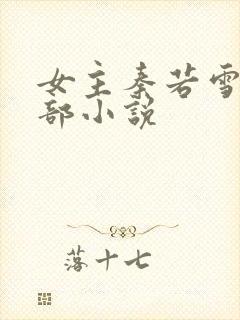 女主秦若雪
部小说
落十七